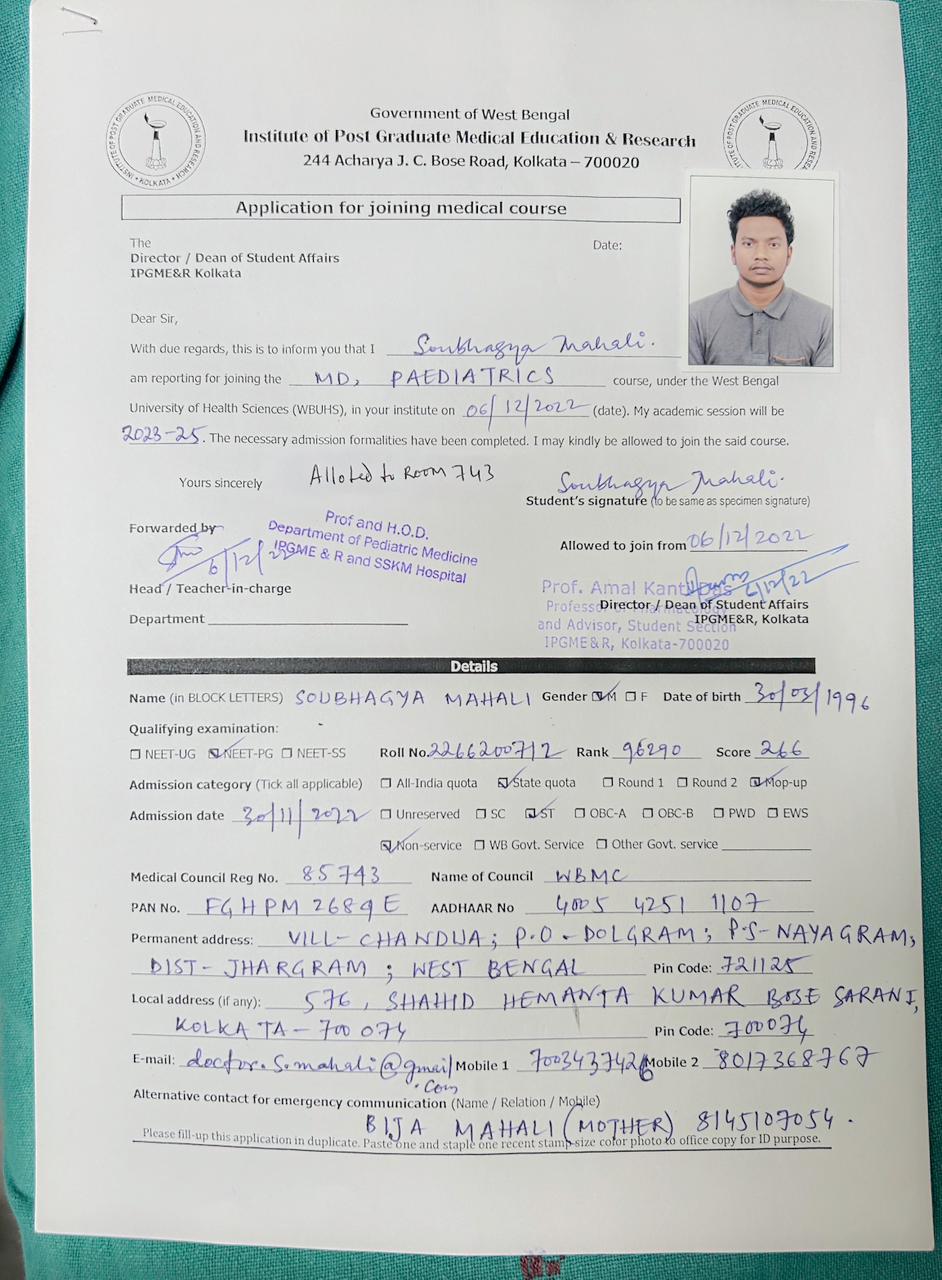 Government of West Bengal
Institute of Post Graduate Medical Education & Research
244 Acharya J. C. Bose Road, Kolkata – 700020
INSTITUTE OF POST GRADUATE MEDICAL EDUCATION AND RESEARCH • KOLKATA •
Application for joining medical course
The
Date:
Director / Dean of Student Affairs
IPGME&R Kolkata
Dear Sir,
With due regards, this is to inform you that I Soubhagya Mahali.
am reporting for joining the MD, PAEDIATRICS course, under the West Bengal
University of Health Sciences (WBUHS), in your institute on 06/12/2022 (date). My academic session will be
2023-25. The necessary admission formalities have been completed. I may kindly be allowed to join the said course.
Yours sincerely Alloted to ROOM 743 Soubhagya Mahali.
Student's signature (to be same as specimen signature)
Forwarded by
Prof and H.O.D.
Department of Pediatric Medicine
IPGME & R and SSKM Hospital
6/12/22
Allowed to join from 06/12/2022
Head / Teacher-in-charge
Prof. Amal Kanti Das 6/12/22
Professor of Pharmacology
Director / Dean of Student Affairs
and Advisor, Student Section
IPGME&R, Kolkata
IPGME&R, Kolkata-700020
Department
Details
Name (in BLOCK LETTERS) SOUBHAGYA MAHALI Gender M F Date of birth 30/03/1996
Qualifying examination:
NEET-UG NEET-PG NEET-SS Roll No. 2266200712 Rank 96290 Score 266
Admission category (Tick all applicable) All-India quota State quota Round 1 Round 2 Mop-up
Admission date 30/11/2022 Unreserved SC ST OBC-A OBC-B PWD EWS
Non-service WB Govt. Service Other Govt. service
Medical Council Reg No. 85743 Name of Council WBMC
PAN No. FGHPM2689E AADHAAR No 4005 4251 1107
Permanent address: VILL- CHANDUA; P.O - DOLGRAM; P.S-NAYAGRAM;
DIST- JHARGRAM ; WEST BENGAL Pin Code: 721125
Local address (if any): 576, SHAHID HEMANTA KUMAR BOSE SARANI,
KOLKATA-700074 Pin Code: 700074
E-mail: doctor.s.mahali@gmail.com Mobile 1 7003437426 Mobile 2 8017368767
Alternative contact for emergency communication (Name / Relation / Mobile)
BIJA MAHALI (MOTHER) 8145107054.
Please fill-up this application in duplicate. Paste one and staple one recent stamp-size color photo to office copy for ID purpose.